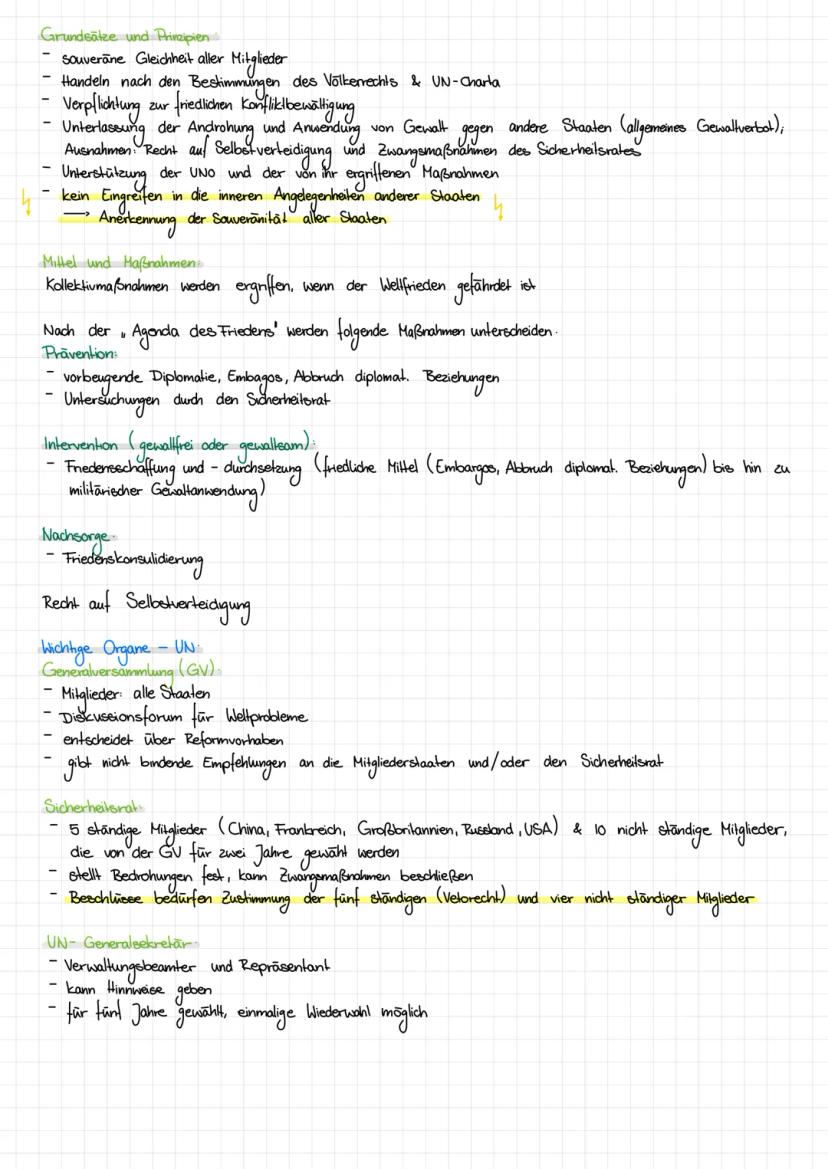 Grundsätze und Prinzipien:
- souveräne Gleichheit aller Mitglieder
- Handeln nach den Bestimmungen des Völkerrechts & UN-Charta
- Verpflichtung zur friedlichen Konfliktbewältigung
- Unterlassung der Androhung und Anwendung von Gewalt gegen andere Staaten (allgemeines Gewaltverbot);
Ausnahmen: Recht auf Selbstverteidigung und Zwangsmaßnahmen des Sicherheitsrates
- Unterstützung der UNO und der von ihr ergriffenen Maßnahmen
- kein Eingreifen in die inneren Angelegenheiten anderer Staaten
→ Anerkennung der Souveränität aller Staaten
Mittel und Maßnahmen:
Kollektivmaßnahmen werden ergriffen, wenn der Weltfrieden gefährdet ist
Nach der „Agenda des Friedens" werden folgende Maßnahmen unterscheiden:
Prävention:
- vorbeugende Diplomatie, Embagos, Abbruch diplomat. Beziehungen
- Untersuchungen durch den Sicherheitsrat
Intervention (gewaltfrei oder gewaltsam):
- Friedensschaffung und - durchsetzung (friedliche Mittel (Embargos, Abbruch diplomat. Beziehungen) bis hin zu
militärischer Gewaltanwendung)
Nachsorge:
- Friedenskonsulidierung
Recht auf Selbstverteidigung
Wichtige Organe - UN:
Generalversammlung (GV):
- Mitglieder: alle Staaten
- Diskussionsforum für Weltprobleme
- entscheidet über Reformvorhaben
- gibt nicht bindende Empfehlungen an die Mitgliederstaaten und/oder den Sicherheitsrat
Sicherheitsrat:
- 5 ständige Mitglieder (China, Frankreich, Großbritannien, Russland, USA) & 10 nicht ständige Mitglieder,
die von der GV für zwei Jahre gewählt werden
- stellt Bedrohungen fest, kann Zwangsmaßnahmen beschließen
- Beschlüsse bedürfen Zustimmung der fünf ständigen (Vetorecht) und vier nicht ständiger Mitglieder
UN- Generalsekretär:
- Verwaltungsbeamter und Repräsentant
- kann Hinnweise geben
- für fünf Jahre gewählt, einmalige Wiederwahl möglich